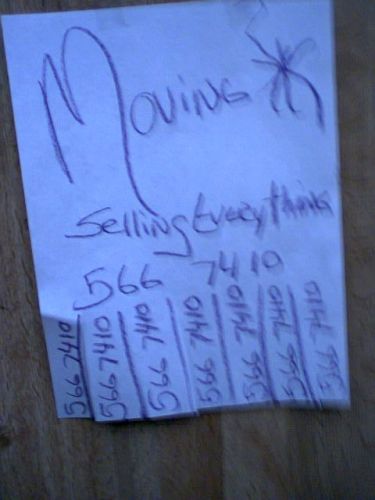 Moving
Selling Everything
566 7410
566 7410
566 7410
566 7410
566 7410
566 7410
566 7410
566 7410